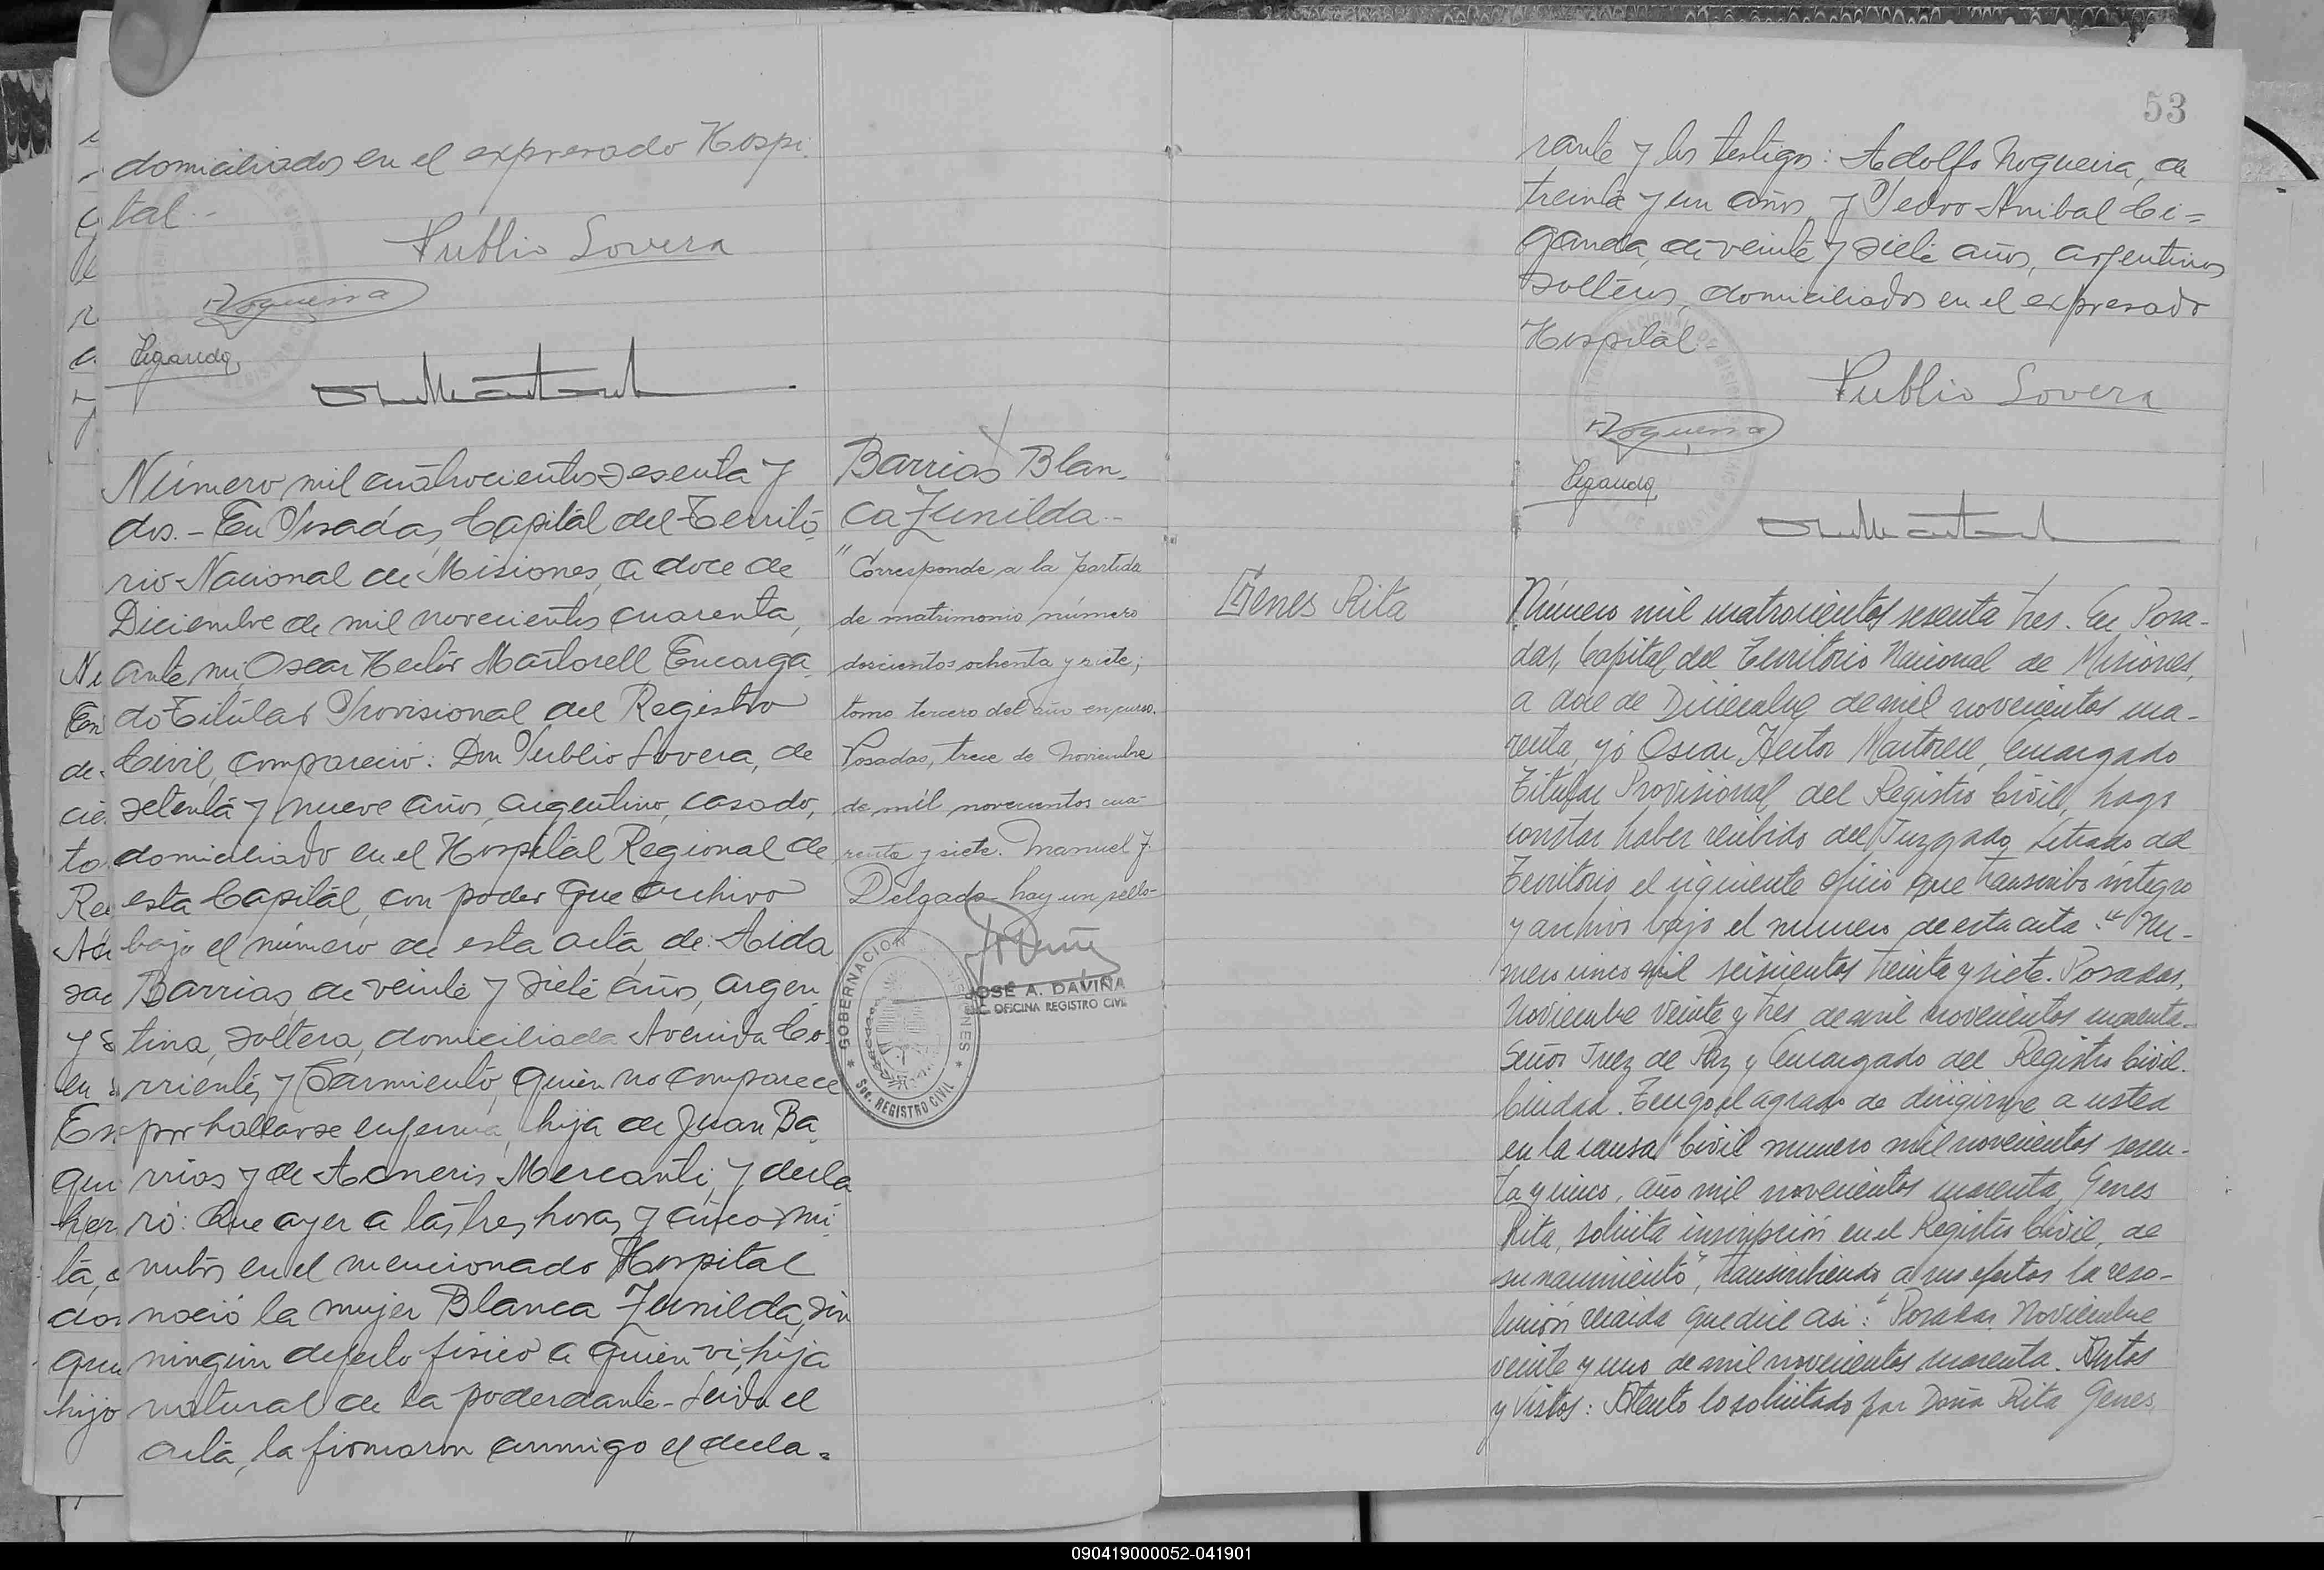 domiciliados en el expresado Hospi-
tal.-
Publio Lovera
Nogueira
Ciganda
Número mil cuatrocientos sesenta y
dos.- En Posadas, Capital del Territo-
rio Nacional de Misiones, a doce de
Diciembre de mil novecientos cuarenta,
ante mi, Oscar Hector Martorell, Encarga-
do Titular Provisional del Registro
Civil, compareció: Don Publio Lovera, de
setenta y nueve años, argentino, casado,
domiciliado en el Hospital Regional de
esta Capital, con poder que archivo
bajo el número de esta acta, de: Aida
Barrios, de veinte y siete años, argen-
tina, soltera, domiciliada Avenida Co-
rrientes y Sarmiento, quien no comparece
por hallarse enferma, hija de Juan Ba-
rrios y de Adneris Mercanti; y decla
ró: Que ayer a las tres horas y cinco mi-
nutos en el mencionado Hospital
nació la mujer Blanca Zunilda, sin
ningún defecto físico a quien vi, hija
natural de la poderdante.- Leida el
acta, la firmaron conmigo el decla=
Barrios Blan-
ca Zunilda.-
"Corresponde a la partida
de matrimonio número
doscientos ochenta y siete;
tomo tercero del año en curso.
Posadas, trece de Noviembre
de mil novecientos cua-
renta y siete. Manuel J.
Delgado- hay un sello-
JOSÉ A. DAVIÑA
OFICINA REGISTRO CIVIL
GOBERNACION MISIONES
Sec. REGISTRO CIVIL
53
rante y los testigos: Adolfo Nogueira, de
treinta y un años y Pedro Anibal Ci=
ganda, de veinte y siete años, argentinos
solteros, domiciliados en el expresado
Hospital.-
Publio Lovera
Nogueira
Ciganda
Genes Rita
Número mil cuatrocientos sesenta tres. En Posa-
das, Capital del Territorio Nacional de Misiones,
a doce de Diciembre de mil novecientos cua-
renta, yó Oscar Hector Martorell, Encargado
Titular Provisional del Registro Civil, hago
constar haber recibido del Juzgado Letrado del
Territorio el siguiente oficio que transcribo integro
y archivo bajo el numero de esta acta: "Nu-
mero cinco mil seiscientos treinta y siete. Posadas,
Noviembre veinte y tres de mil novecientos cuarenta.
Señor Juez de Paz y Encargado del Registro Civil.
Ciudad. Tengo el agrado de dirigirme a usted
en la causa "Civil numero mil novecientos sesen-
ta y cinco, año mil novecientos cuarenta, Genes
Rita, solicita inscripción en el Registro Civil, de
su nacimiento", transcribiendo a sus efectos la reso-
lución recaida que dice asi: "Posadas Noviembre
veinte y uno de mil novecientos cuarenta. Autos
y Vistos: Atento lo solicitado por Doña Rita Genes,
090419000052-041901